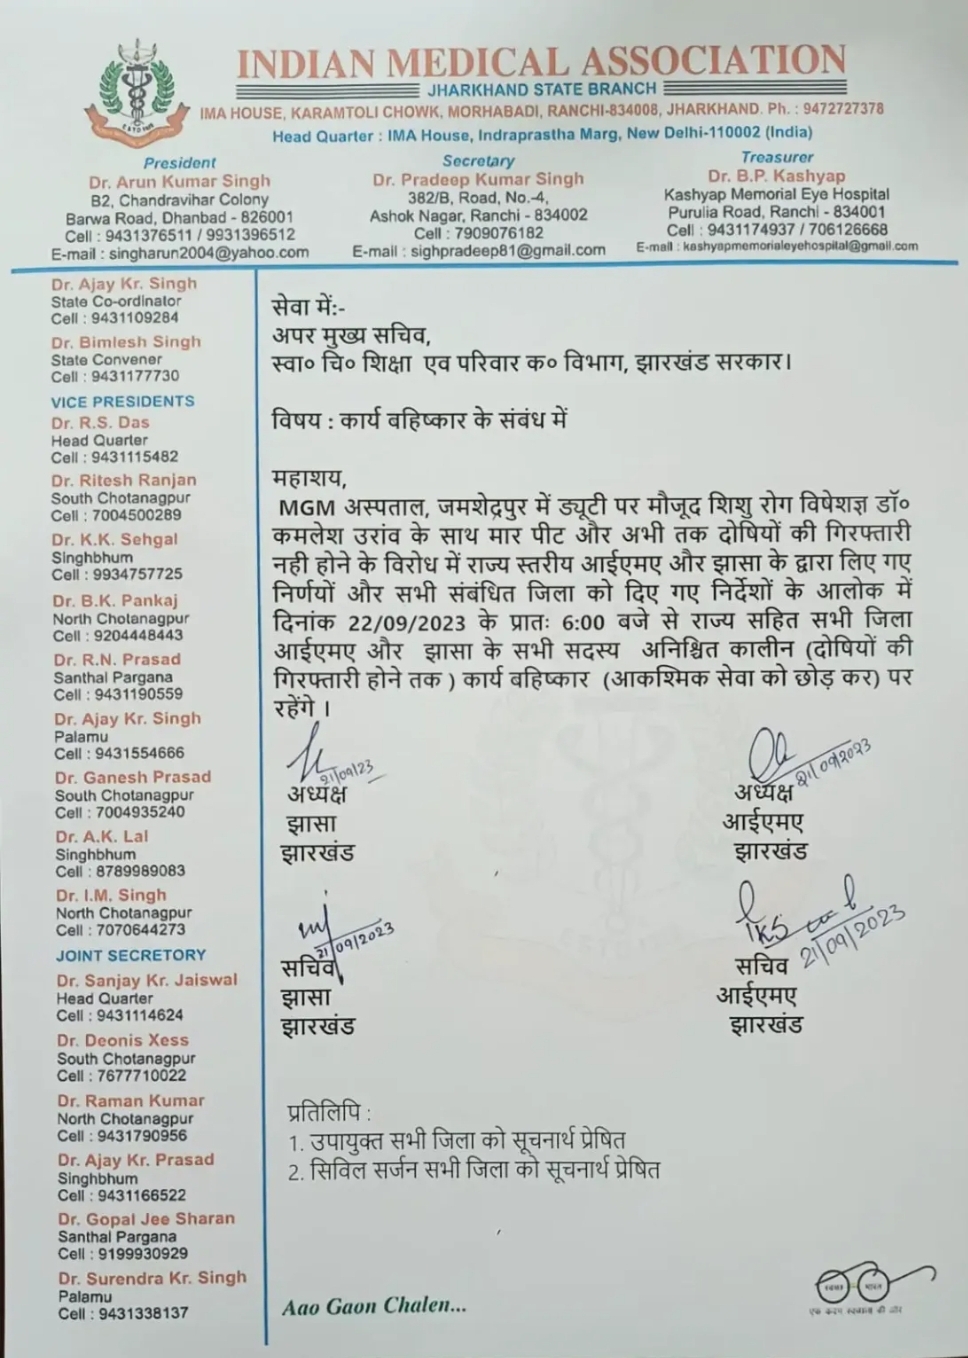 INDIAN MEDICAL ASSOCIATION
JHARKHAND STATE BRANCH
IMA HOUSE, KARAMTOLI CHOWK, MORHABADI, RANCHI-834008, JHARKHAND. Ph. : 9472727378
Head Quarter : IMA House, Indraprastha Marg, New Delhi-110002 (India)
President
Dr. Arun Kumar Singh
B2, Chandravihar Colony
Barwa Road, Dhanbad - 826001
Cell : 9431376511 / 9931396512
E-mail : singharun2004@yahoo.com
Secretary
Dr. Pradeep Kumar Singh
382/B, Road, No.-4,
Ashok Nagar, Ranchi - 834002
Cell : 7909076182
E-mail : sighpradeep81@gmail.com
Treasurer
Dr. B.P. Kashyap
Kashyap Memorial Eye Hospital
Purulia Road, Ranchi - 834001
Cell : 9431174937 / 706126668
E-mail : kashyapmemorialeyehospital@gmail.com
Dr. Ajay Kr. Singh
State Co-ordinator
Cell : 9431109284
Dr. Bimlesh Singh
State Convener
Cell : 9431177730
VICE PRESIDENTS
Dr. R.S. Das
Head Quarter
Cell : 9431115482
Dr. Ritesh Ranjan
South Chotanagpur
Cell : 7004500289
Dr. K.K. Sehgal
Singhbhum
Cell : 9934757725
Dr. B.K. Pankaj
North Chotanagpur
Cell : 9204448443
Dr. R.N. Prasad
Santhal Pargana
Cell : 9431190559
Dr. Ajay Kr. Singh
Palamu
Cell : 9431554666
Dr. Ganesh Prasad
South Chotanagpur
Cell : 7004935240
Dr. A.K. Lal
Singhbhum
Cell : 8789989083
Dr. I.M. Singh
North Chotanagpur
Cell : 7070644273
JOINT SECRETORY
Dr. Sanjay Kr. Jaiswal
Head Quarter
Cell : 9431114624
Dr. Deonis Xess
South Chotanagpur
Cell : 7677710022
Dr. Raman Kumar
North Chotanagpur
Cell : 9431790956
Dr. Ajay Kr. Prasad
Singhbhum
Cell : 9431166522
Dr. Gopal Jee Sharan
Santhal Pargana
Cell : 9199930929
Dr. Surendra Kr. Singh
Palamu
Cell : 9431338137
सेवा में:-
अपर मुख्य सचिव,
स्वा० चि० शिक्षा एव परिवार क० विभाग, झारखंड सरकार।
विषय : कार्य बहिष्कार के संबंध में
महाशय,
MGM अस्पताल, जमशेद्रपुर में ड्यूटी पर मौजूद शिशु रोग विषेशज्ञ डॉ०
कमलेश उरांव के साथ मार पीट और अभी तक दोषियों की गिरफ्तारी
नही होने के विरोध में राज्य स्तरीय आईएमए और झासा के द्वारा लिए गए
निर्णयों और सभी संबंधित जिला को दिए गए निर्देशों के आलोक में
दिनांक 22/09/2023 के प्रातः 6:00 बजे से राज्य सहित सभी जिला
आईएमए और झासा के सभी सदस्य अनिश्चित कालीन (दोषियों की
गिरफ्तारी होने तक ) कार्य बहिष्कार (आकश्मिक सेवा को छोड़ कर) पर
रहेंगे ।
21/09/23
अध्यक्ष
झासा
झारखंड
21/09/2023
अध्यक्ष
आईएमए
झारखंड
21/09/2023
सचिव
झासा
झारखंड
21/09/2023
सचिव
आईएमए
झारखंड
प्रतिलिपि :
1. उपायुक्त सभी जिला को सूचनार्थ प्रेषित
2. सिविल सर्जन सभी जिला को सूचनार्थ प्रेषित
Aao Gaon Chalen...
स्वच्छ भारत
एक कदम स्वच्छता की ओर